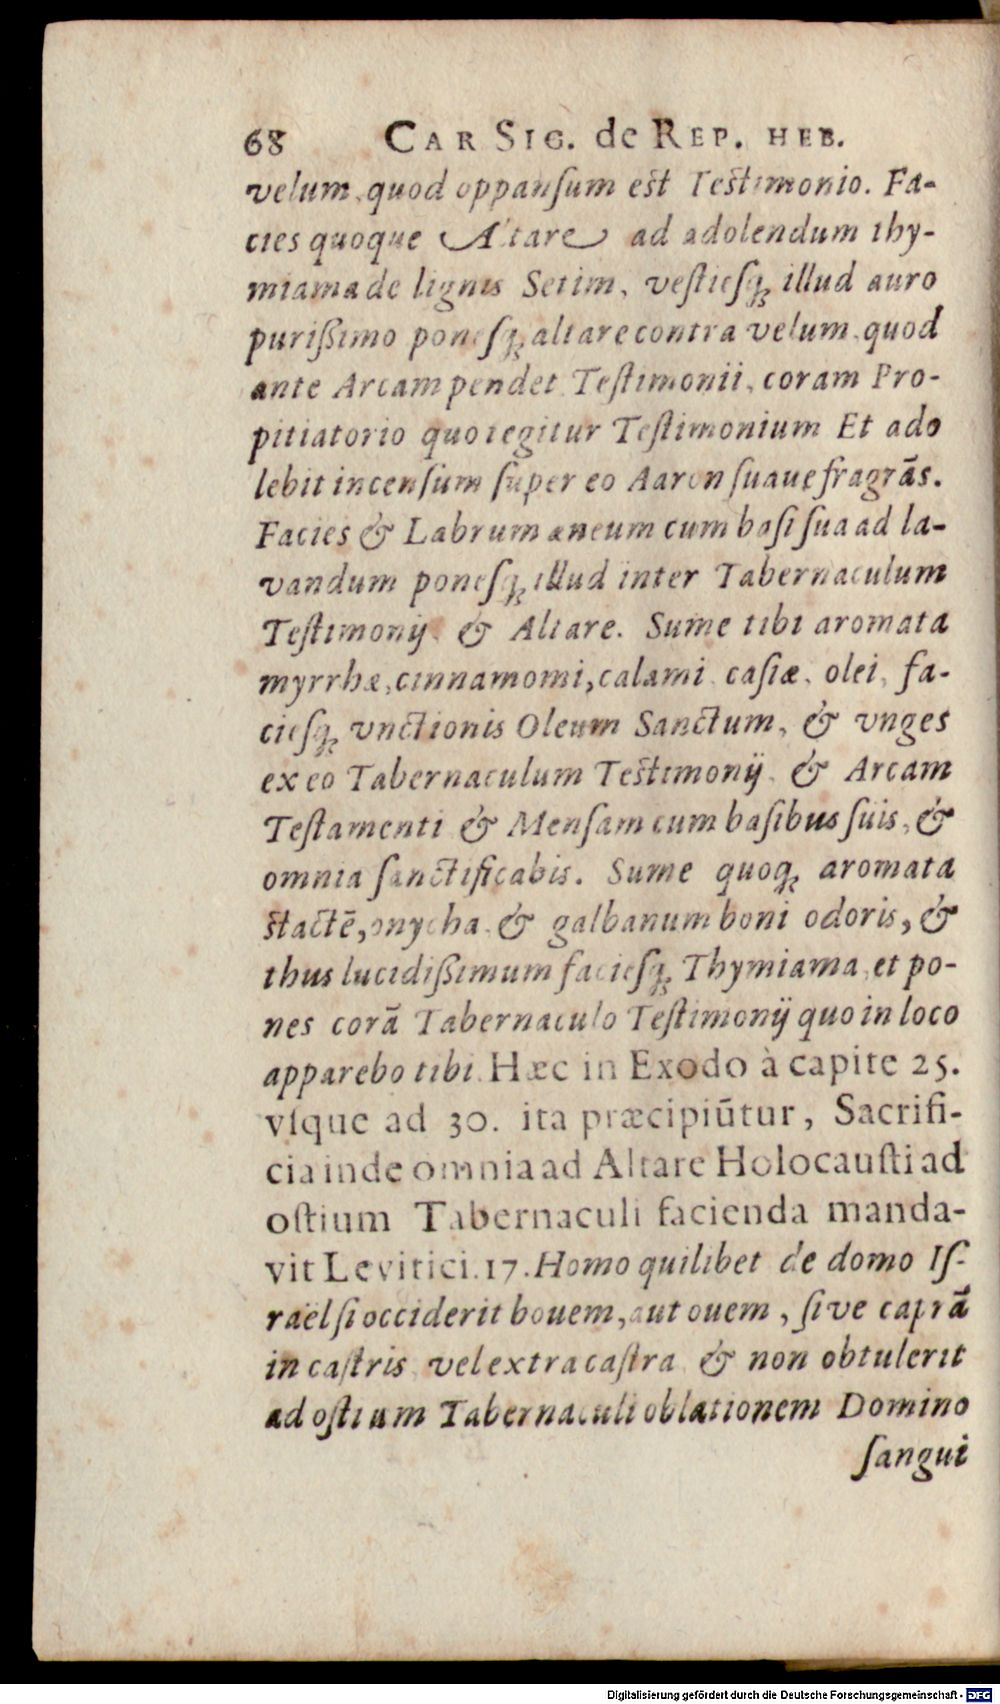 68 CAR SIG. de REP. HEB.
velum, quod oppanſum est Testimonio. Fa-
cies quoque Altare ad adolendum thy-
miama de lignis Setim, veſtieſq; illud auro
purißimo poneſq; altare contra velum, quod
ante Arcam pendet Teſtimonii, coram Pro-
pitiatorio quo tegitur Teſtimonium Et ado
lebit incenſum ſuper eo Aaron ſuave fragrãs.
Facies & Labrum æneum cum baſi ſua ad la-
vandum poneſq; illud inter Tabernaculum
Teſtimonij & Altare. Sume tibi aromata
myrrhæ, cinnamomi, calami, caſiæ, olei, fa-
cieſq; vnctionis Oleum Sanctum, & vnges
ex eo Tabernaculum Testimonij & Arcam
Teſtamenti & Menſam cum baſibus ſuis, &
omnia ſanctificabis. Sume quoq; aromata
stactẽ, onycha & galbanum boni odoris, &
thus lucidißimum facieſq; Thymiama, et po-
nes corã Tabernaculo Teſtimonij quo in loco
apparebo tibi. Hæc in Exodo à capite 25.
vſque ad 30. ita præcipiũtur, Sacrifi-
cia inde omnia ad Altare Holocauſti ad
oſtium Tabernaculi facienda manda-
vit Levitici. 17. Homo quilibet de domo Iſ-
raël ſi occiderit bouem, aut ouem, ſive caprã
in caſtris vel extra caſtra & non obtulerit
ad oſtium Tabernaculi oblationem Domino
ſangui
Digitalisierung gefördert durch die Deutsche Forschungsgemeinschaft - DFG